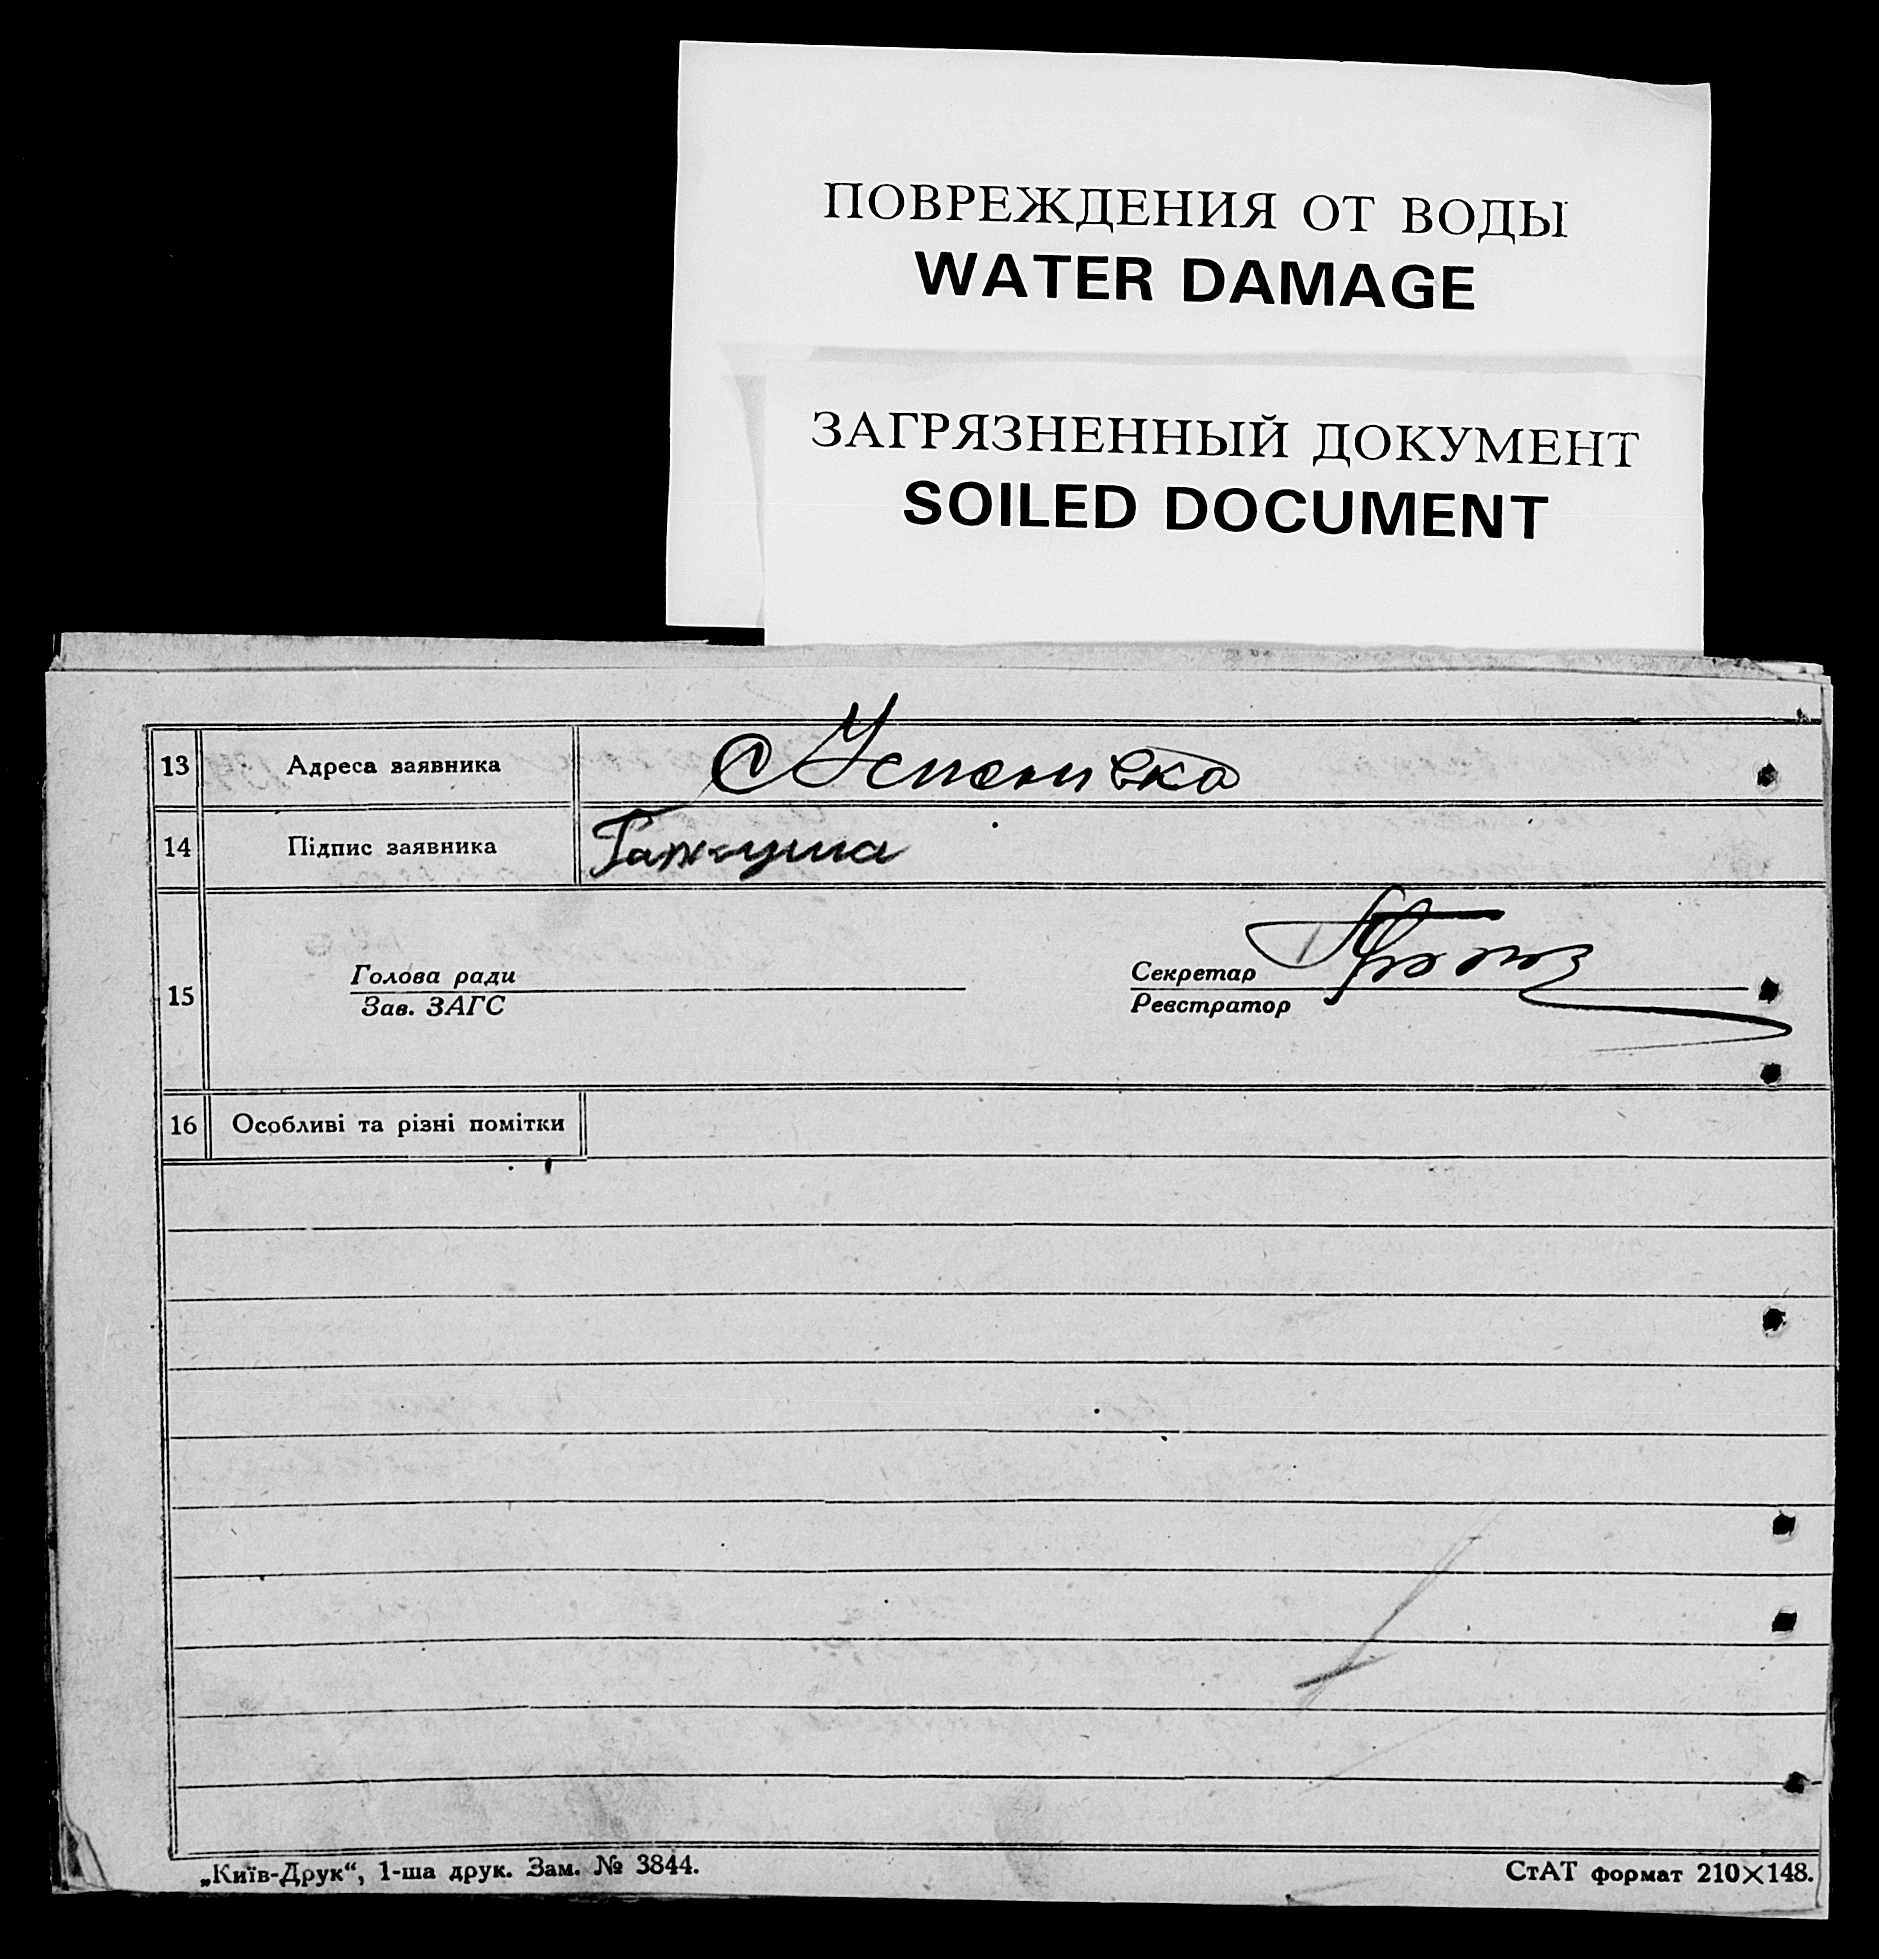 ПОВРЕЖДЕНИЯ ОТ ВОДЫ
WATER DAMAGE
ЗАГРЯЗНЕННЫЙ ДОКУМЕНТ
SOILED DOCUMENT
13 Адреса заявника с Успенивка
14 Підпис заявника
Голова ради Секретар
15
Зав. ЗАГС Реєстратор
16 Особливі та різні помітки
„Київ-Друк“, 1-ша друк. Зам. № 3844. СтАТ формат 210×148.